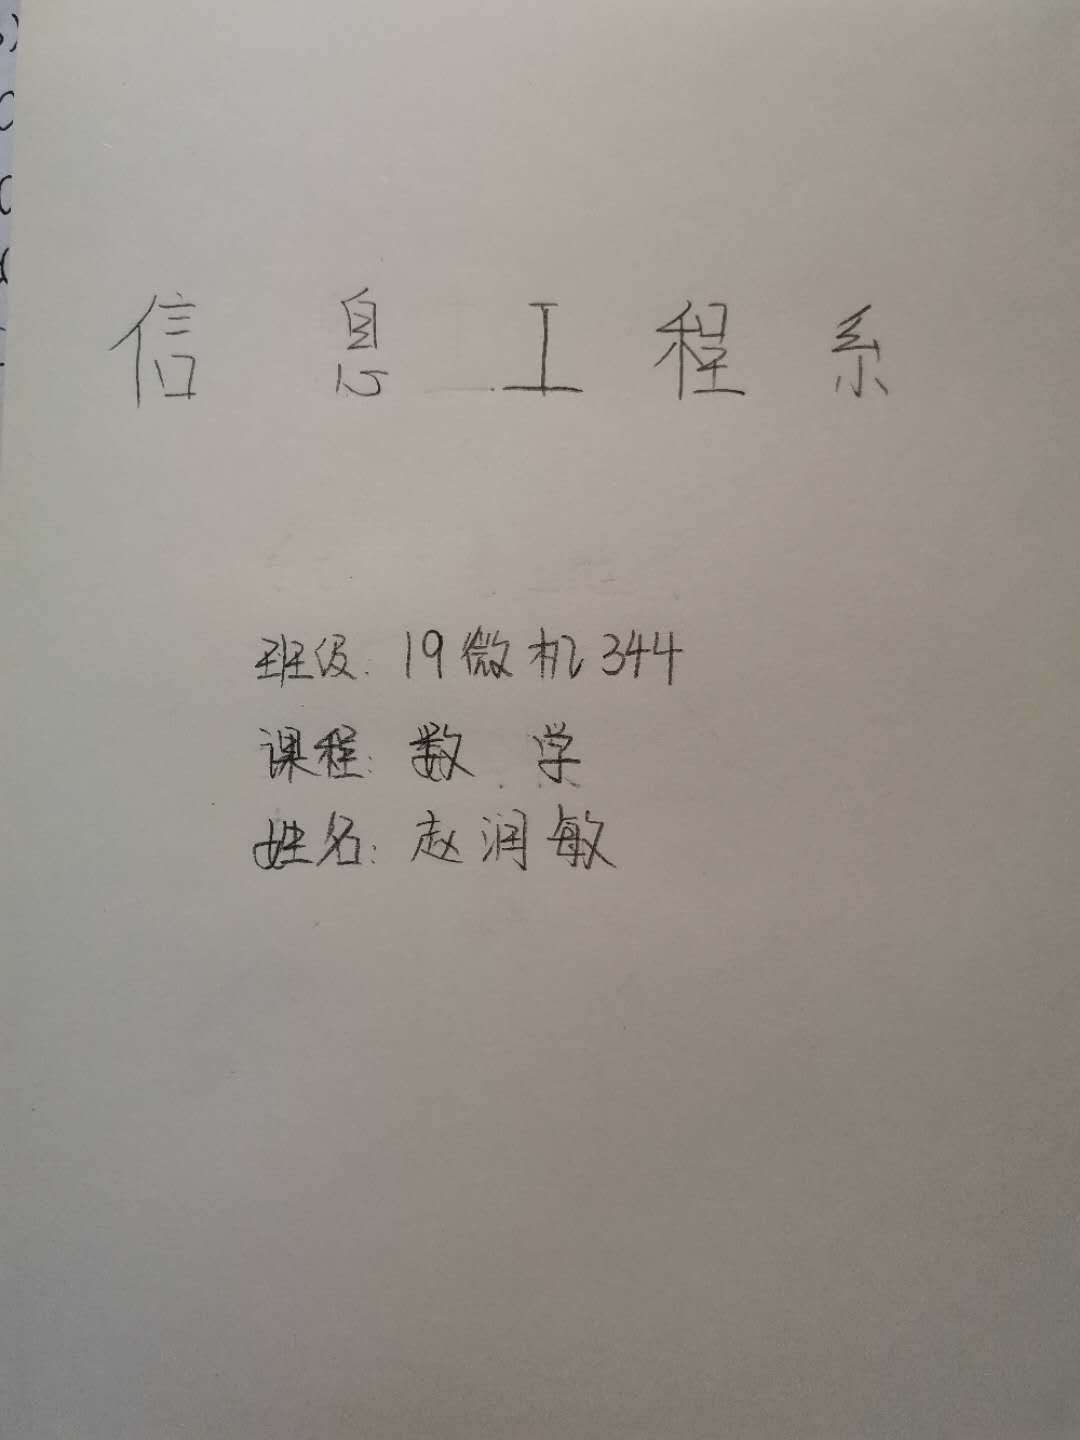 信息工程系
班级:19微机344
课程:数学
姓名:赵润敏